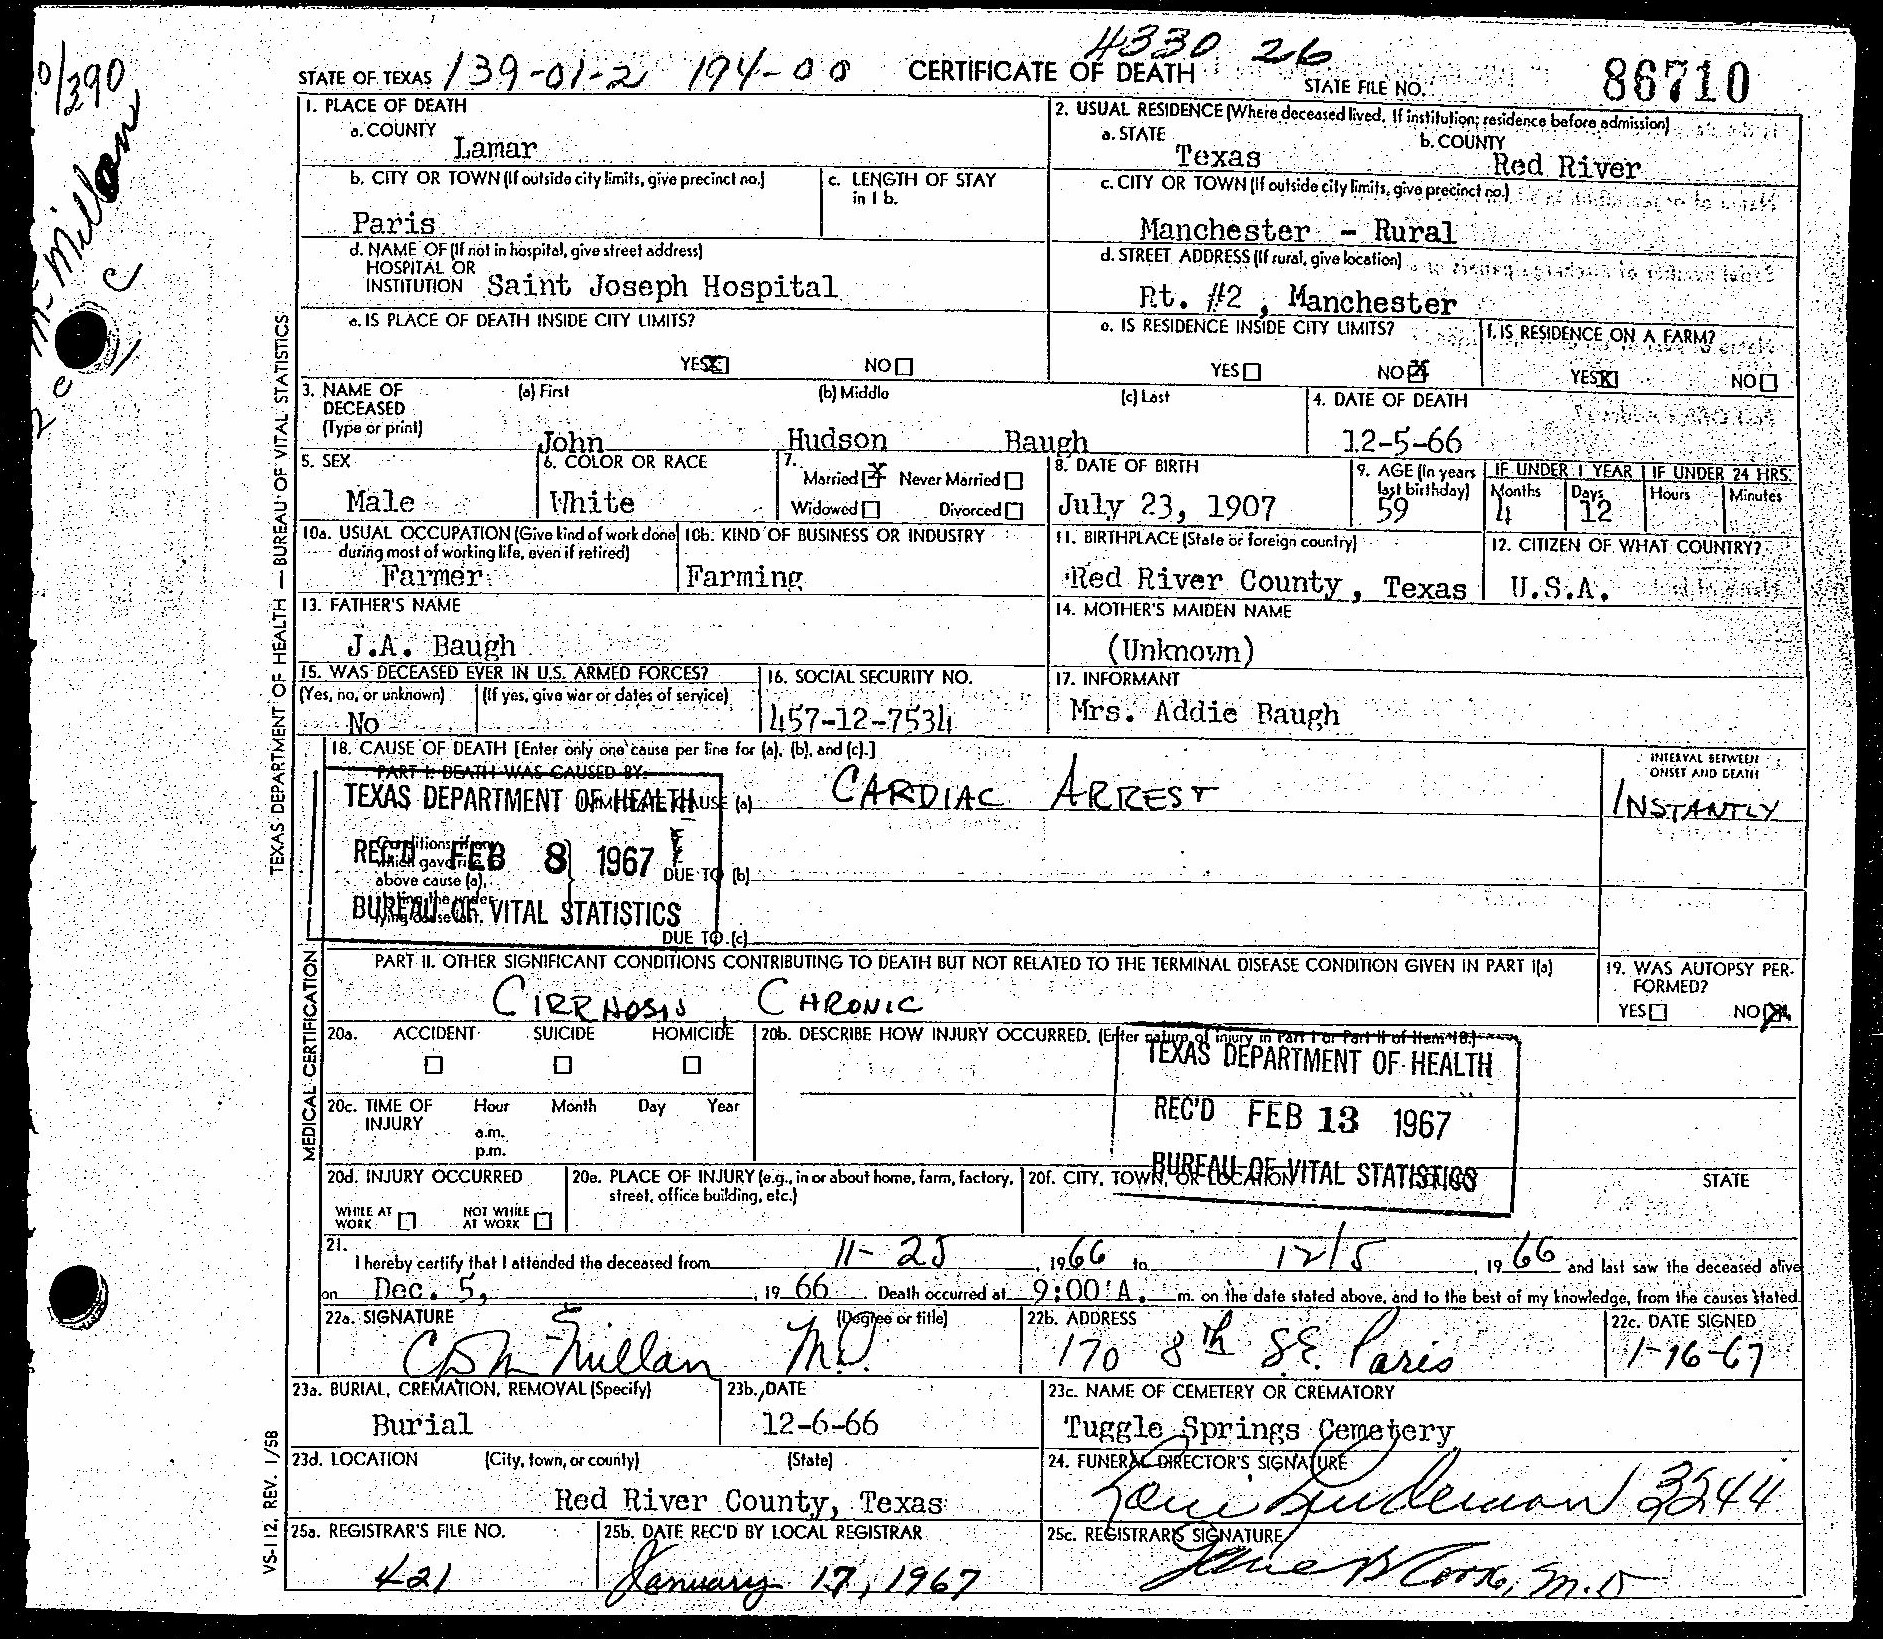 4330 26
STATE OF TEXAS 139-01-2 194-00 CERTIFICATE OF DEATH STATE FILE NO. 86710
0/390
1. PLACE OF DEATH
a. COUNTY
Lamar
b. CITY OR TOWN (If outside city limits, give precinct no.)
Paris
c. LENGTH OF STAY in 1 b.
d. NAME OF (If not in hospital, give street address)
HOSPITAL OR
INSTITUTION Saint Joseph Hospital
e. IS PLACE OF DEATH INSIDE CITY LIMITS?
YES NO
2. USUAL RESIDENCE (Where deceased lived. If institution; residence before admission)
a. STATE b. COUNTY
Texas Red River
c. CITY OR TOWN (If outside city limits, give precinct no.)
Manchester - Rural
d. STREET ADDRESS (If rural, give location)
Rt. #2 , Manchester
e. IS RESIDENCE INSIDE CITY LIMITS?
YES NO
f. IS RESIDENCE ON A FARM?
YES NO
3. NAME OF DECEASED (Type or print) (a) First (b) Middle (c) Last
John Hudson Baugh
4. DATE OF DEATH
12-5-66
5. SEX
Male
6. COLOR OR RACE
White
7. Married Never Married
Widowed Divorced
8. DATE OF BIRTH
July 23, 1907
9. AGE (In years last birthday)
59
IF UNDER 1 YEAR IF UNDER 24 HRS.
Months Days Hours Minutes
4 12
10a. USUAL OCCUPATION (Give kind of work done
during most of working life, even if retired)
Farmer
10b. KIND OF BUSINESS OR INDUSTRY
Farming
11. BIRTHPLACE (State or foreign country)
Red River County , Texas
12. CITIZEN OF WHAT COUNTRY?
U.S.A.
13. FATHER'S NAME
J.A. Baugh
14. MOTHER'S MAIDEN NAME
(Unknown)
15. WAS DECEASED EVER IN U.S. ARMED FORCES?
(Yes, no, or unknown) (If yes, give war or dates of service)
No
16. SOCIAL SECURITY NO.
457-12-7534
17. INFORMANT
Mrs. Addie Baugh
18. CAUSE OF DEATH [Enter only one cause per line for (a), (b), and (c).]
PART I. DEATH WAS CAUSED BY:
(a) CARDIAC ARREST
INTERVAL BETWEEN
ONSET AND DEATH
INSTANTLY
TEXAS DEPARTMENT OF HEALTH
REC'D FEB 8 1967
BUREAU OF VITAL STATISTICS
DUE TO (b)
DUE TO (c)
PART II. OTHER SIGNIFICANT CONDITIONS CONTRIBUTING TO DEATH BUT NOT RELATED TO THE TERMINAL DISEASE CONDITION GIVEN IN PART I(a)
CIRRHOSIS, CHRONIC
19. WAS AUTOPSY PERFORMED?
YES NO
20a. ACCIDENT SUICIDE HOMICIDE
20b. DESCRIBE HOW INJURY OCCURRED. (Enter nature of injury in Part I or Part II of Item 18.)
TEXAS DEPARTMENT OF HEALTH
REC'D FEB 13 1967
BUREAU OF VITAL STATISTICS
20c. TIME OF INJURY Hour Month Day Year
a.m.
p.m.
20d. INJURY OCCURRED
WHILE AT WORK NOT WHILE AT WORK
20e. PLACE OF INJURY (e.g., in or about home, farm, factory,
street, office building, etc.)
20f. CITY, TOWN, OR LOCATION COUNTY STATE
21.
I hereby certify that I attended the deceased from 11-25, 1966 to 12/5, 1966 and last saw the deceased alive
on Dec. 5, 19 66 Death occurred at 9:00 A. m. on the date stated above, and to the best of my knowledge, from the causes stated.
22a. SIGNATURE (Degree or title)
McMillan M.D.
22b. ADDRESS
170 8th S.E. Paris
22c. DATE SIGNED
1-16-67
23a. BURIAL, CREMATION, REMOVAL (Specify)
Burial
23b. DATE
12-6-66
23c. NAME OF CEMETERY OR CREMATORY
Tuggle Springs Cemetery
23d. LOCATION (City, town, or county) (State)
Red River County, Texas
24. FUNERAL DIRECTOR'S SIGNATURE
3244
25a. REGISTRAR'S FILE NO.
421
25b. DATE REC'D BY LOCAL REGISTRAR
January 17, 1967
25c. REGISTRAR'S SIGNATURE
M.D
TEXAS DEPARTMENT OF HEALTH — BUREAU OF VITAL STATISTICS
MEDICAL CERTIFICATION
VS-112, REV. 1/58